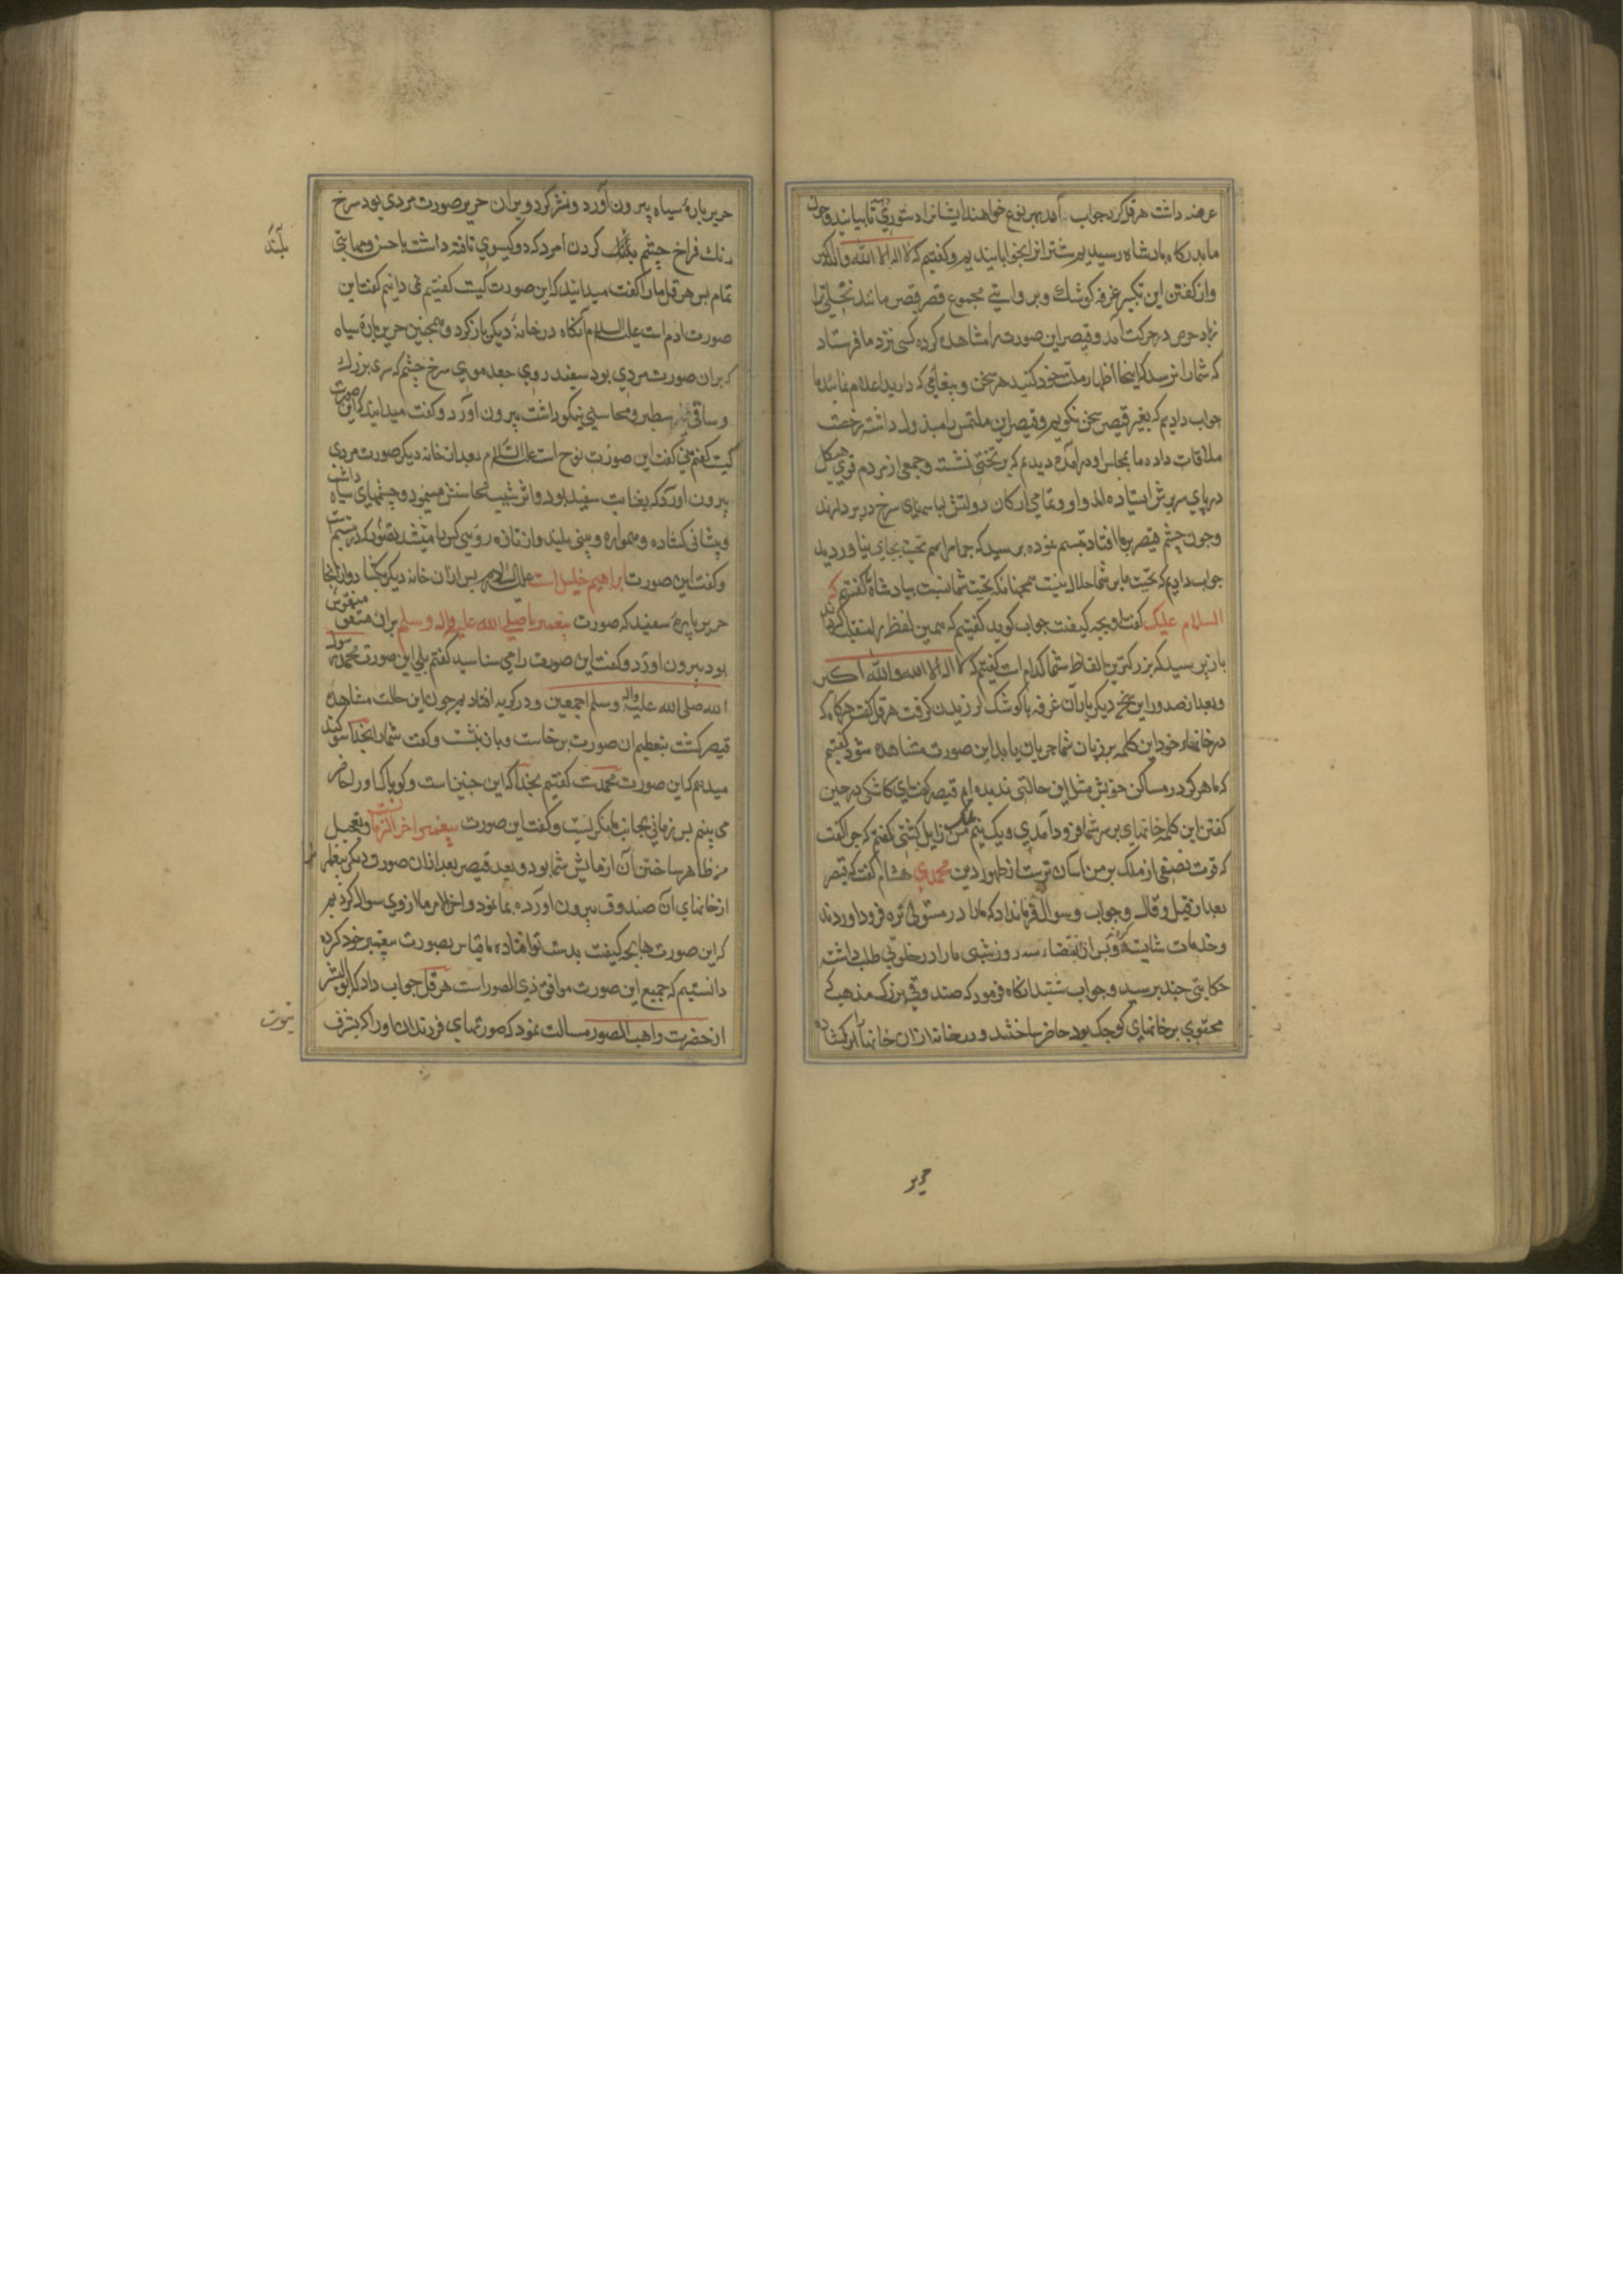 عرضه داشت هرقل کرد جواب آمد بهر نوع خواهند ایشانرا دستوری ده تا بیایند و چون
ما بدرکاه بادشاه رسیدیم شترانرا بخوابانیدیم و کفتیم که لا اله الا الله والله اکبر
واز کفتن این تکبیر غرفه کوشک و بروایتی مجموع قصر قیصر مانند نخلی ترا
زباد در حرکت آمد و قیصر این صورت را مشاهده کرده کسی نزد ما فرستاد
که شما را نرسد که اینجا اظهار ملت خود کنید هر سخن و پیغامی که دارید
جواب دادیم که بغیر قیصر سخن نکوییم و قیصر این ملتمس را مبذول داشته رخصت
ملاقات داده ما بمجلس او درآمده دیدیم که بر تختی نشسته و جمعی از مردم قوی هیکل
در پای سریرش ایستاده اند و او و تمامی ارکان دولتش لباسهای سرخ در بر دارند
و چون چشم قیصر بر ما افتاد تبسم نموده پرسید که چرا مراسم تحیت بجای نیاوردید
جواب دادیم که تحیت ما بر شما حلال نیست همچنانکه تحیت شما نسبت ببادشاه کفتیم که
السلام علیک کفت او بچه کیفیت جواب کوید کفتیم که همین لفظ را
باز پرسید که بزرکترین الفاظ شما کدام است کفتیم که لا اله الا الله والله اکبر
و بعد از صدور این سخن دیکر بار آن غرفه با کوشک لرزیدن کرفت هرقل کفت هرکاه که
در خانهاء خود این کلمه بر زبان شما جریان یابد این صورت مشاهده شود کفتیم
که ما هرکز در مساکن خویش مثل این حالتی ندیده ایم قیصر کفت ای کاشکی در حین
کفتن این کلمه خانهای بر سر شما فرود آمدی و یک نیم ملک من زایل کشتی کفتم که چرا کفت
که فوت نصفی از ملک بر من آسان ترست از ظهور دین محمدی هشام کفت که قیصر
بعد از قیل و قال و جواب و سوال فرمان داد که ما را در منزلی نزه فرود آوردند
و خدمات شایسته کرد و پس از انقضاء سه روز شبی ما را در خلوتی طلب داشته
حکایتی چند پرسید و جواب شنید آنکاه فرمود که صندوقی بزرک مذهب که
محتوی بر خانهای کوچک بود حاضر ساختند و در خانه از آن خانها را کشاده
حریر
حریر پارهٔ سیاه بیرون آورد و نشر کرد و بران حریر صورت مردی بود سرخ
رنک فراخ چشم بلند کردن امرد که دو کیسوی تافته داشت با حسن و بهایی
بلند
تمام پس هرقل ما را کفت میدانید که این صورت کیست کفتیم نمی دانیم کفت این
صورت آدم است علیه السلام آنکاه در خانهٔ دیکر باز کرد و همچنین حریر پارهٔ سیاه
که بران صورت مردی بود سفید روی جعد موی سرخ چشم که سری بزرک
و ساقی سطبر و محاسنی نیکو داشت بیرون آورد و کفت میدانید که این صورت
کیست کفتم نی کفت این صورت نوح است علیه السلام بعد از آن خانه دیکر صورت مردی
بیرون آورد که بغایت سفید بود و اثر شیب از محاسنش مینمود و چشمهای سیاه داشت
و پیشانی کشاده و هموار و بینی بلند و از تازه رویی
و کفت این صورت ابراهیم خلیل است علیه السلام پس ازان خانه دیکر بکشاد و از آنجا
حریر پارهٔ سفید که صورت پیغمبر ما صلی الله علیه واله وسلم بران منقوش
بود بیرون آورد و کفت این صورت را می شناسید کفتم بلی این صورت محمد رسول
الله صلی الله علیه واله وسلم اجمعین و در کریه افتادیم چون این حالت مشاهدهٔ
قیصر کشت بتعظیم آن صورت برخاست و باز نشست و کفت شما را بخدا سوکند
میدهم که این صورت محمدست کفتیم بخدا که این چنین است و کویا که او را حاضر
می بینم پس زمانی بجانب ما نکریست و کفت این صورت پیغمبر آخر الزمانست و تعجیل
من ظاهر ساختن آن آزمایش شما بود و بعد قیصر بعد ازان صور دیکر پیغمبران را
از خانهای آن صندوق بیرون آورده بما نمود و آخر الامر ما ازوی سوال کردیم
که این صورتها بچه کیفیت بدست تو افتاده ما قیاس بصورت پیغمبر خود کرده
دانستیم که جمیع این صورت موافق ذی الصور است هرقل جواب داد که ابو البشر
از حضرت واهب الصور مسالت نمود که صورتهای فرزندان او را که بشرف
نبوت